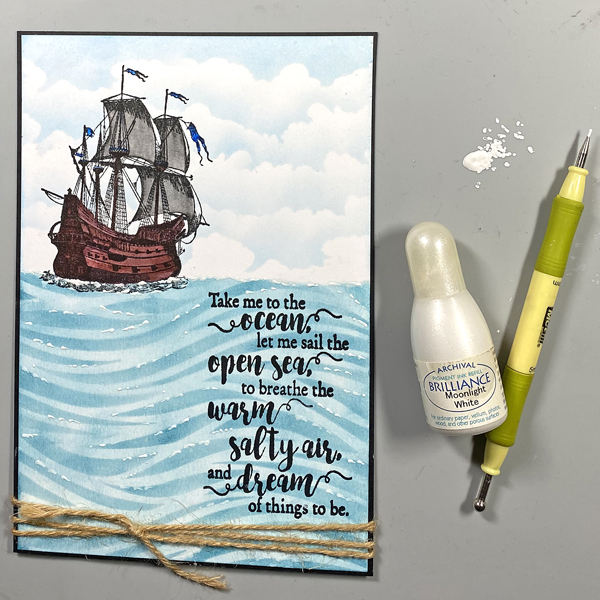 Take me to the
ocean,
let me sail the
open sea,
to breathe the
warm
salty air,
and dream
of things to be.
ARCHIVAL
PIGMENT INK REFILL
BRILLIANCE
Moonlight
White
For ordinary paper, vellum, photos,
wood, and other porous surfaces